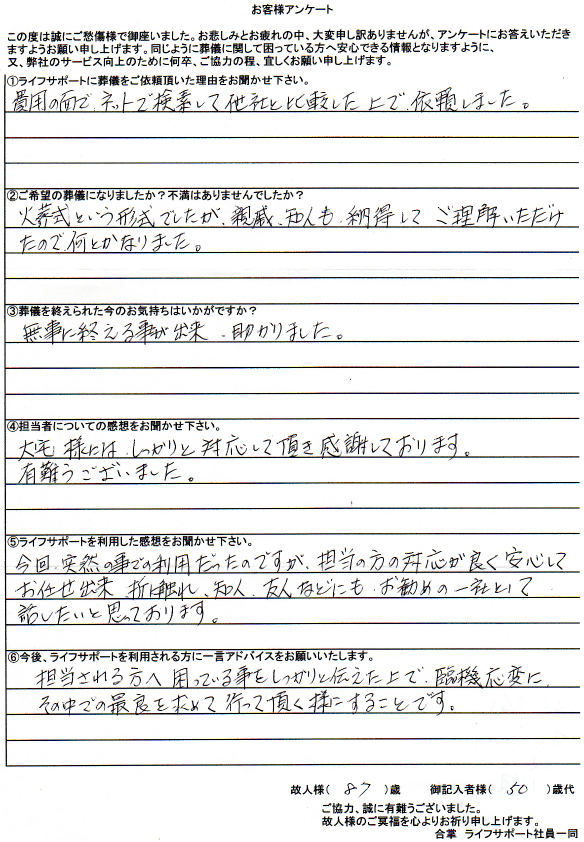 お客様アンケート
この度は誠にご愁傷様で御座いました。お悲しみとお疲れの中、大変申し訳ありませんが、アンケートにお答えいただき
ますようお願い申し上げます。同じように葬儀に関して困っている方へ安心できる情報となりますように、
又、弊社のサービス向上のために何卒、ご協力の程、宜しくお願い申し上げます。
①ライフサポートに葬儀をご依頼頂いた理由をお聞かせ下さい。
費用の面で、ネットで検索して他社と比較した上で、依頼しました。
②ご希望の葬儀になりましたか？不満はありませんでしたか？
火葬式という形式でしたが、親戚、知人も、納得して ご理解いただけ
たので、何とかなりました。
③葬儀を終えられた今のお気持ちはいかがですか？
無事に終える事が出来、助かりました。
④担当者についての感想をお聞かせ下さい。
大宅様には、しっかりと対応して頂き感謝しております。
有難うございました。
⑤ライフサポートを利用した感想をお聞かせ下さい。
今回、突然の事での利用だったのですが、担当の方の対応が良く安心して
お任せ出来、折に触れ、知人、友人などにも、お勧めの一社として
話したいと思っております。
⑥今後、ライフサポートを利用される方に一言アドバイスをお願いいたします。
担当される方へ困っている事をしっかりと伝えた上で、臨機応変に
その中での最良を求めて行って頂く様にすることです。
故人様( 87 )歳 御記入者様( 50 )歳代
ご協力、誠に有難うございました。
故人様のご冥福を心よりお祈り申し上げます。
合掌 ライフサポート社員一同